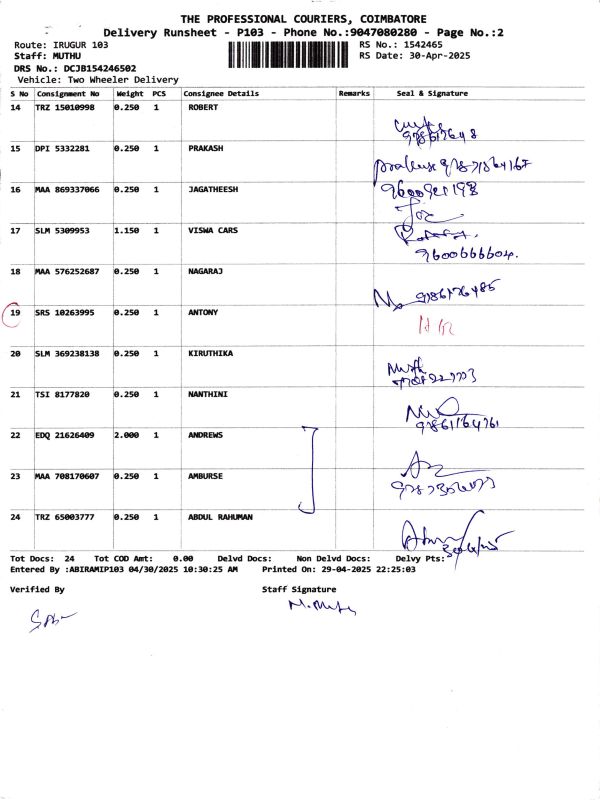 THE PROFESSIONAL COURIERS, COIMBATORE
Delivery Runsheet - P103 - Phone No.:9047080280 - Page No.:2
Route: IRUGUR 103
RS No.: 1542465
Staff: MUTHU
RS Date: 30-Apr-2025
DRS No.: DCJB154246502
Vehicle: Two Wheeler Delivery
S No Consignment No Weight PCS Consignee Details Remarks Seal & Signature
14 TRZ 15010998 0.250 1 ROBERT
15 DPI 5332281 0.250 1 PRAKASH
16 MAA 869337066 0.250 1 JAGATHEESH
17 SLM 5309953 1.150 1 VISWA CARS
9600666604.
18 MAA 576252687 0.250 1 NAGARAJ
19 SRS 10263995 0.250 1 ANTONY
20 SLM 369238138 0.250 1 KIRUTHIKA
21 TSI 8177820 0.250 1 NANTHINI
22 EDQ 21626409 2.000 1 ANDREWS
23 MAA 708170607 0.250 1 AMBURSE
24 TRZ 65003777 0.250 1 ABDUL RAHUMAN
Tot Docs: 24 Tot COD Amt: 0.00 Delvd Docs: Non Delvd Docs: Delvy Pts:
Entered By :ABIRAMIP103 04/30/2025 10:30:25 AM Printed On: 29-04-2025 22:25:03
Verified By Staff Signature